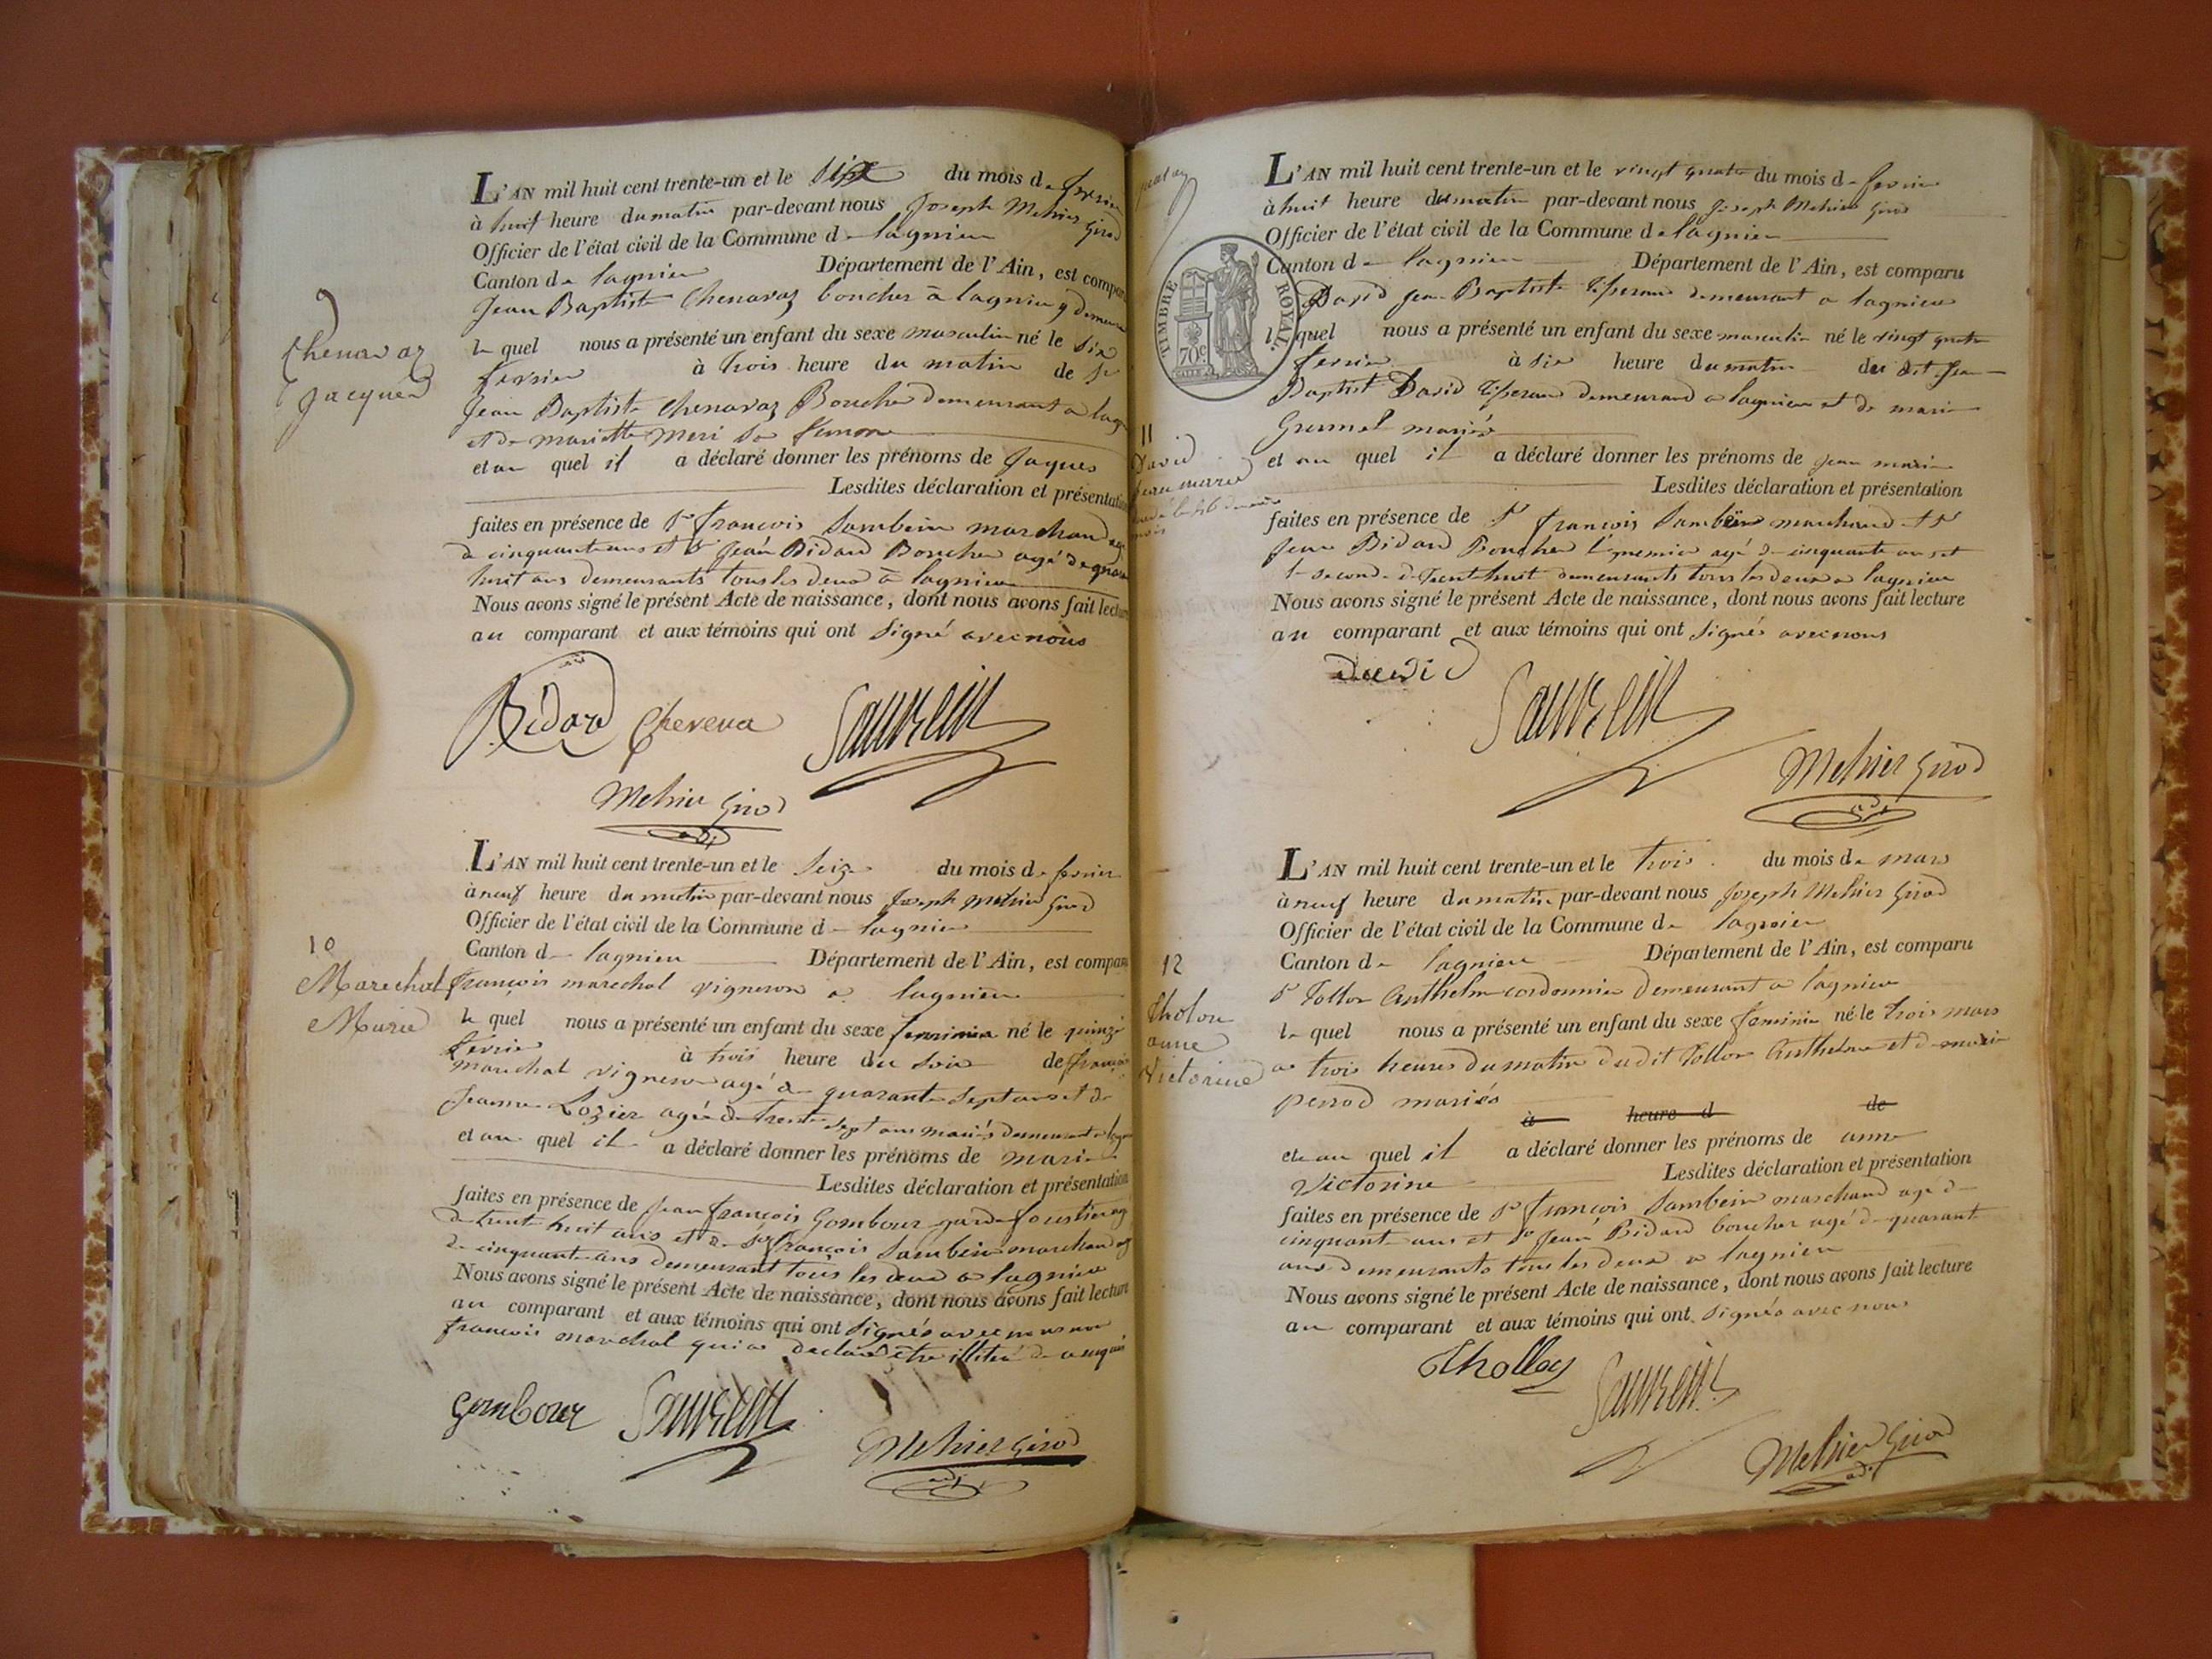 9
Chenavaz
Jacques
L'AN mil huit cent trente-un et le six du mois de fevrier
à huit heure du matin par-devant nous Joseph Mehier Girod
Officier de l'état civil de la Commune de lagnieu
Canton de lagnieu Département de l'Ain, est comparu
Jean Baptiste Chenavaz boucher à lagnieu y demeurant
le quel nous a présenté un enfant du sexe masculin né le six
fevrier à trois heure du matin de
Jean Baptiste Chenavaz Boucher demeurant a
et de mariette meri sa femme
et au quel il a déclaré donner les prénoms de Jaques
Lesdites déclaration et présentation
faites en présence de Sr françois Sambein marchand
de cinquante ans et Sr Jean Bidard Boucher agé de
huit ans demeurants tous les deux à lagnieu
Nous avons signé le présent Acte de naissance, dont nous avons fait lecture
au comparant et aux témoins qui ont signé avec nous
Bidard Cheneva Sauvein
Mehier Girod
10
Marechal
Marie
L'AN mil huit cent trente-un et le seize du mois de fevrier
à neuf heure du matin par-devant nous Joseph mehier Girod
Officier de l'état civil de la Commune de lagnieu
Canton de lagnieu Département de l'Ain, est comparu
françois marechal vigneron a lagnieu
le quel nous a présenté un enfant du sexe feminin né le quinze
fevrier à trois heure du soir de françois
marechal vigneron agé de quarante sept ans et de
Jeanne Lozier agée de trente sept ans mariés demeurant a
et au quel il a déclaré donner les prénoms de marie
Lesdites déclaration et présentation
faites en présence de Jean françois Gombour garde forestier
de trente huit ans et de Sr françois Sambein marchand
de cinquante ans demeurant tous les deux a lagnieu
Nous avons signé le présent Acte de naissance, dont nous avons fait lecture
au comparant et aux témoins qui ont signés avec nous non
françois marechal qui a declaré être illitéré de ce enquis
Gombour Sauvein
Mehier Girod
L'AN mil huit cent trente-un et le vingt quatre du mois de fevrier
à huit heure du matin par-devant nous Joseph Mehier Girod
Officier de l'état civil de la Commune de lagnieu
Canton de lagnieu Département de l'Ain, est comparu
TIMBRE ROYAL.
70c
David Jean Baptiste tisserand demeurant a lagnieu
le quel nous a présenté un enfant du sexe masculin né le vingt quatre
fevrier à six heure du matin du dit Jean
Baptist David tisserand demeurand a lagnieu et de marie
Grumel mariés
11
David
Jean marie
et au quel il a déclaré donner les prénoms de Jean marie
Lesdites déclaration et présentation
faites en présence de Sr françois Sambein marchand et Sr
Jean Bidard Boucher le premier agé de cinquante ans et
le second de trente huit demeurants tous les deux a lagnieu
Nous avons signé le présent Acte de naissance, dont nous avons fait lecture
au comparant et aux témoins qui ont signés avec nous
david
Sauvein
Mehier Girod
12
Tholon
anne
Victorine
L'AN mil huit cent trente-un et le trois du mois de mars
à neuf heure du matin par-devant nous Joseph Mehier Girod
Officier de l'état civil de la Commune de lagnieu
Canton de lagnieu Département de l'Ain, est comparu
Sr Tollon Anthelme cordonnier demeurant a lagnieu
le quel nous a présenté un enfant du sexe feminin né le trois mars
a trois heures du matin dudit Tollon Anthelme et de marie
perrod mariés
à heure d de
et au quel il a déclaré donner les prénoms de anne
Victorine Lesdites déclaration et présentation
faites en présence de Sr françois Sambein marchand agé de
cinquante ans et Sr Jean Bidard boucher agé de quarante
ans demeurants tous les deux a lagnieu
Nous avons signé le présent Acte de naissance, dont nous avons fait lecture
au comparant et aux témoins qui ont signés avec nous
Thollon Sauvein
Mehier Girod